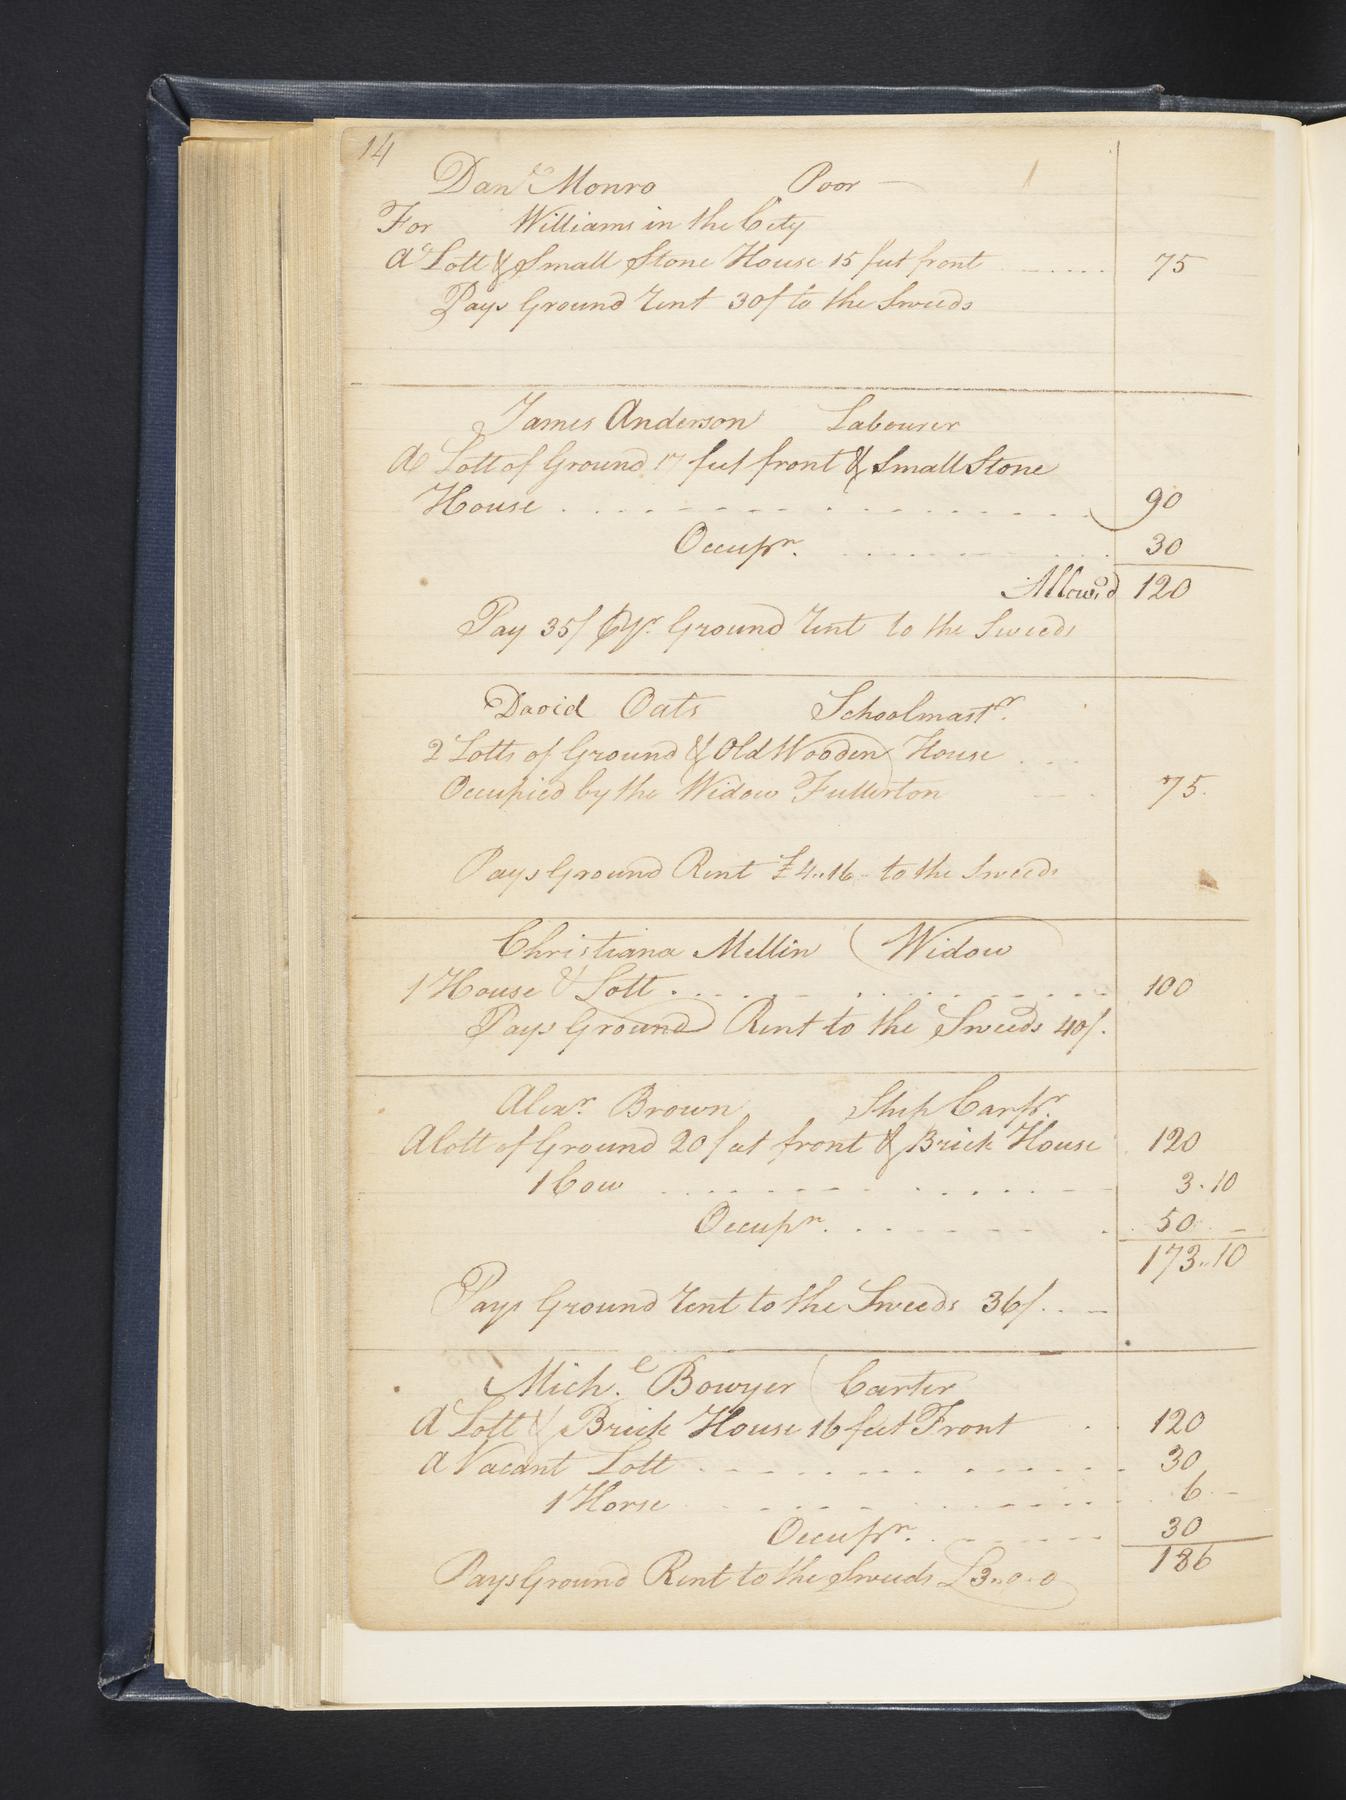 14
Danl Monro Poor —
For Williams in the City
A Lott & Small Stone House 15 feet front 75
Pays Ground Rent 30/ to the Sweeds
James Anderson Labourer
A Lott of Ground 17 feet front & Small Stone
House 90
Occupn. 30
Allow'd 120
Pay 35/ ⅌ Yr. Ground Rent to the Sweeds
David Oats Schoolmastr.
2 Lotts of Ground & Old Wooden House
Occupied by the Widow Fullerton 75.
Pays Ground Rent £4..16- to the Sweeds
Christiana Mellin (Widow
1 House & Lott 100
Pays Ground Rent to the Sweeds 40/.
Alexr. Brown Ship Carpr.
A lott of Ground 20 feet front & Brick House 120
1 Cow 3.10
Occupn. 50 –
173..10
Pays Ground Rent to the Sweeds 36/.
Michl. Bowyer (Carter
A Lott & Brick House 16 feet Front 120
A Vacant Lott 30
1 Horse 6 –
Occupn. 30
186
Pays Ground Rent to the Sweeds £3..0.0